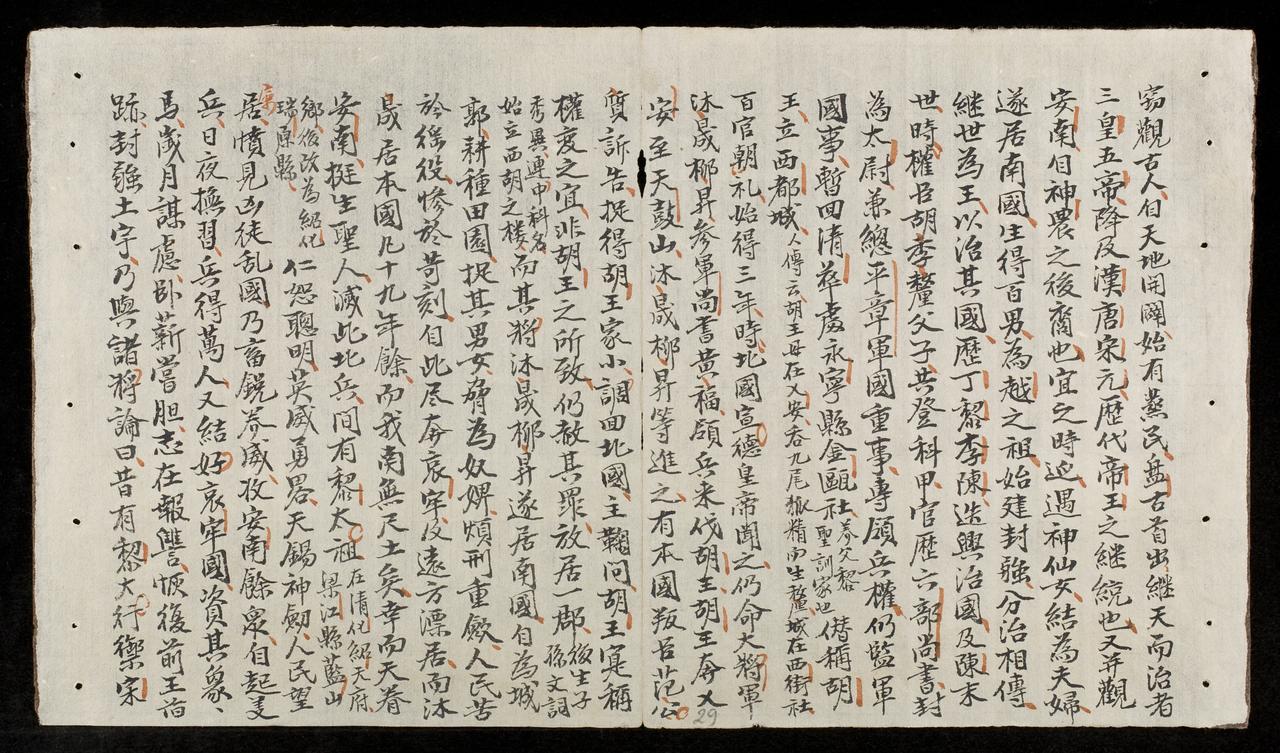 窃觀古人自天地開闢始有蒸民盘古首出継天而治者
三皇五帝降及漢唐宋元歷代帝王之継統也又并觀
安南自神農之後裔也宜之時迠遇神仙女結為夫婦
遂居南國生得百男為越之祖始建封疆分治相傳
継世為王以治其國歷丁黎李陳迭興治國及陳末
世時權臣胡季犛父子共登科甲官歷六部尚書封
為太尉兼總平章軍國重事專領兵權仍監軍
國事暫回清華處永寧縣金甌社養父黎聖訓家也僣稱胡
王立西都城人傳云胡王母在乂安吞九尾狐精而生犛城在西街社
百官朝礼始得三年時北國宣德皇帝聞之仍命大將軍
沐晟柳昇參軍尚書黄福領兵来伐胡王胡王奔乂
安至天鼓山沐晟柳昇等進之有本國叛臣范公
質訴告捉得胡王家小調回北國主鞠问胡王寔稱
權度之宜非胡王之所致仍赦其罪放居一郡後生子孫文詞
秀異連中科名始立西胡之楼而其將沐晟柳昇遂居南國自為城
郭耕種田園捉其男女脅為奴婢煩刑重歛人民苦
於徭役惨於苛刻自此尽奔哀牢及遠方漂居而沐
晟居本國凡十九年餘而我南無尺土矣幸而天眷
安南挺生聖人滅此北兵间有黎太祖在清化紹天府梁江縣藍山
鄉後改為紹化瑞原縣仁恕聰明英威勇畧天錫神劒人民望
居憤見凶徒乱國乃畜銳养威攻安南餘衆自起义
兵日夜撫習兵得萬人又結好哀牢國資其象
馬歲月謀慮卧薪嘗胆志在報讐恢後前王旧
跡封疆土宇乃與諸將論曰昔有黎大行禦宋
29